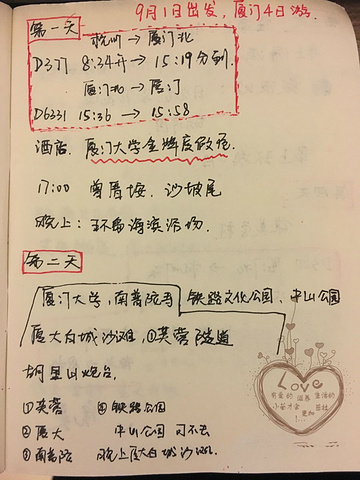 9月1日出发，厦门4日游.
第一天
杭州 → 厦门北
D377 8:34开 → 15:19分到.
厦门北 → 厦门
D6331 15:36 → 15:58
酒店. 厦门大学金牌度假店.
17:00 曾厝垵. 沙坡尾
晚上: 环岛海滨浴场.
第二天
厦门大学, 南普陀寺 铁路文化公园、中山公园
厦大白城沙滩, ①芙蓉隧道
胡里山炮台,
①芙蓉 ④铁路公园
②厦大 中山公园 可不去
③南普陀 晚上厦大白城沙滩.
Love